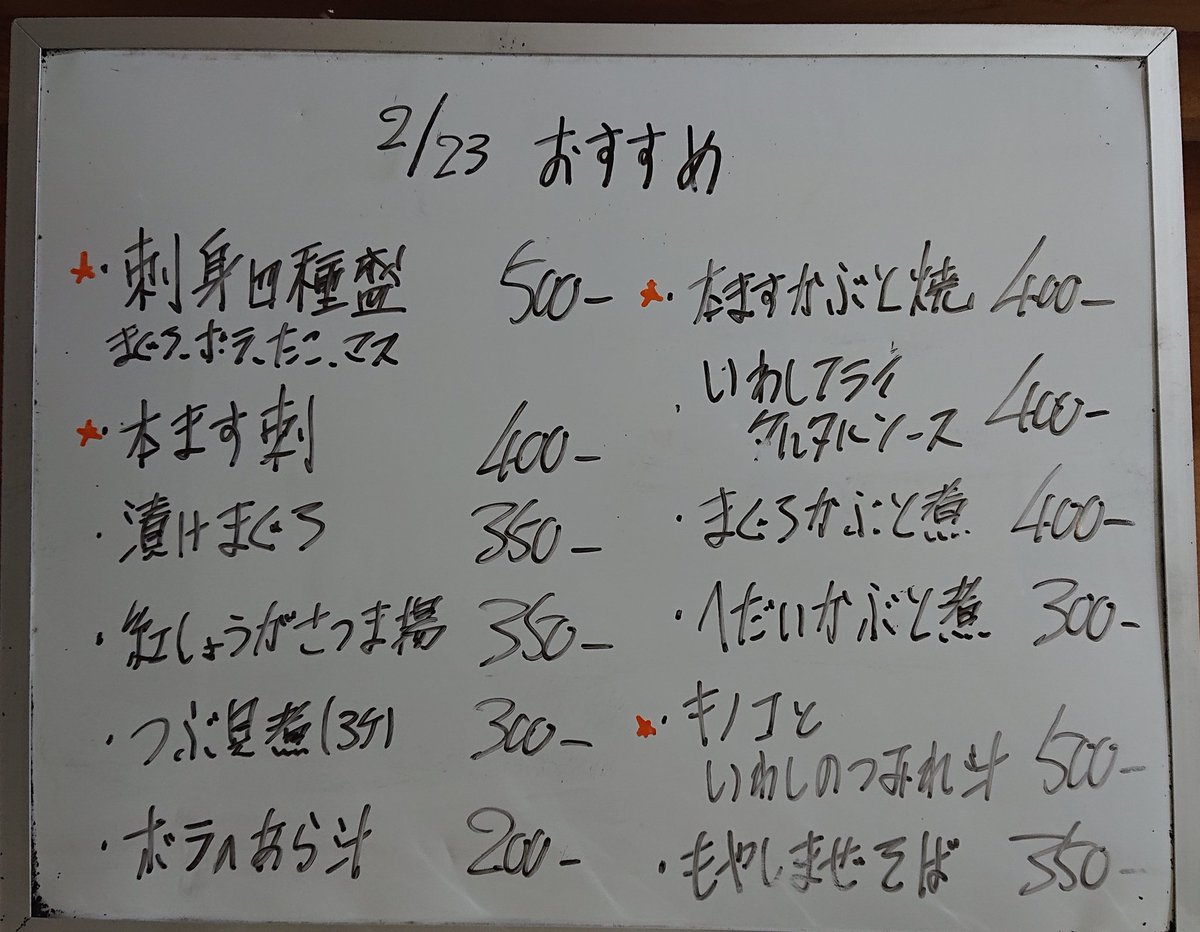 2/23 おすすめ
★・刺身四種盛 500-
まぐろ、ボラ、たこ、マス
★・本ます刺 400-
・漬けまぐろ 350-
・紅しょうがさつま揚 350-
・つぶ貝煮(3ケ) 300-
・ボラのあら汁 200-
★・本ますかぶと焼 400-
・いわしフライ
タルタルソース 400-
・まぐろかぶと煮 400-
・へだいかぶと煮 300-
★・キノコと
いわしのつみれ汁 500-
・もやしまぜそば 350-